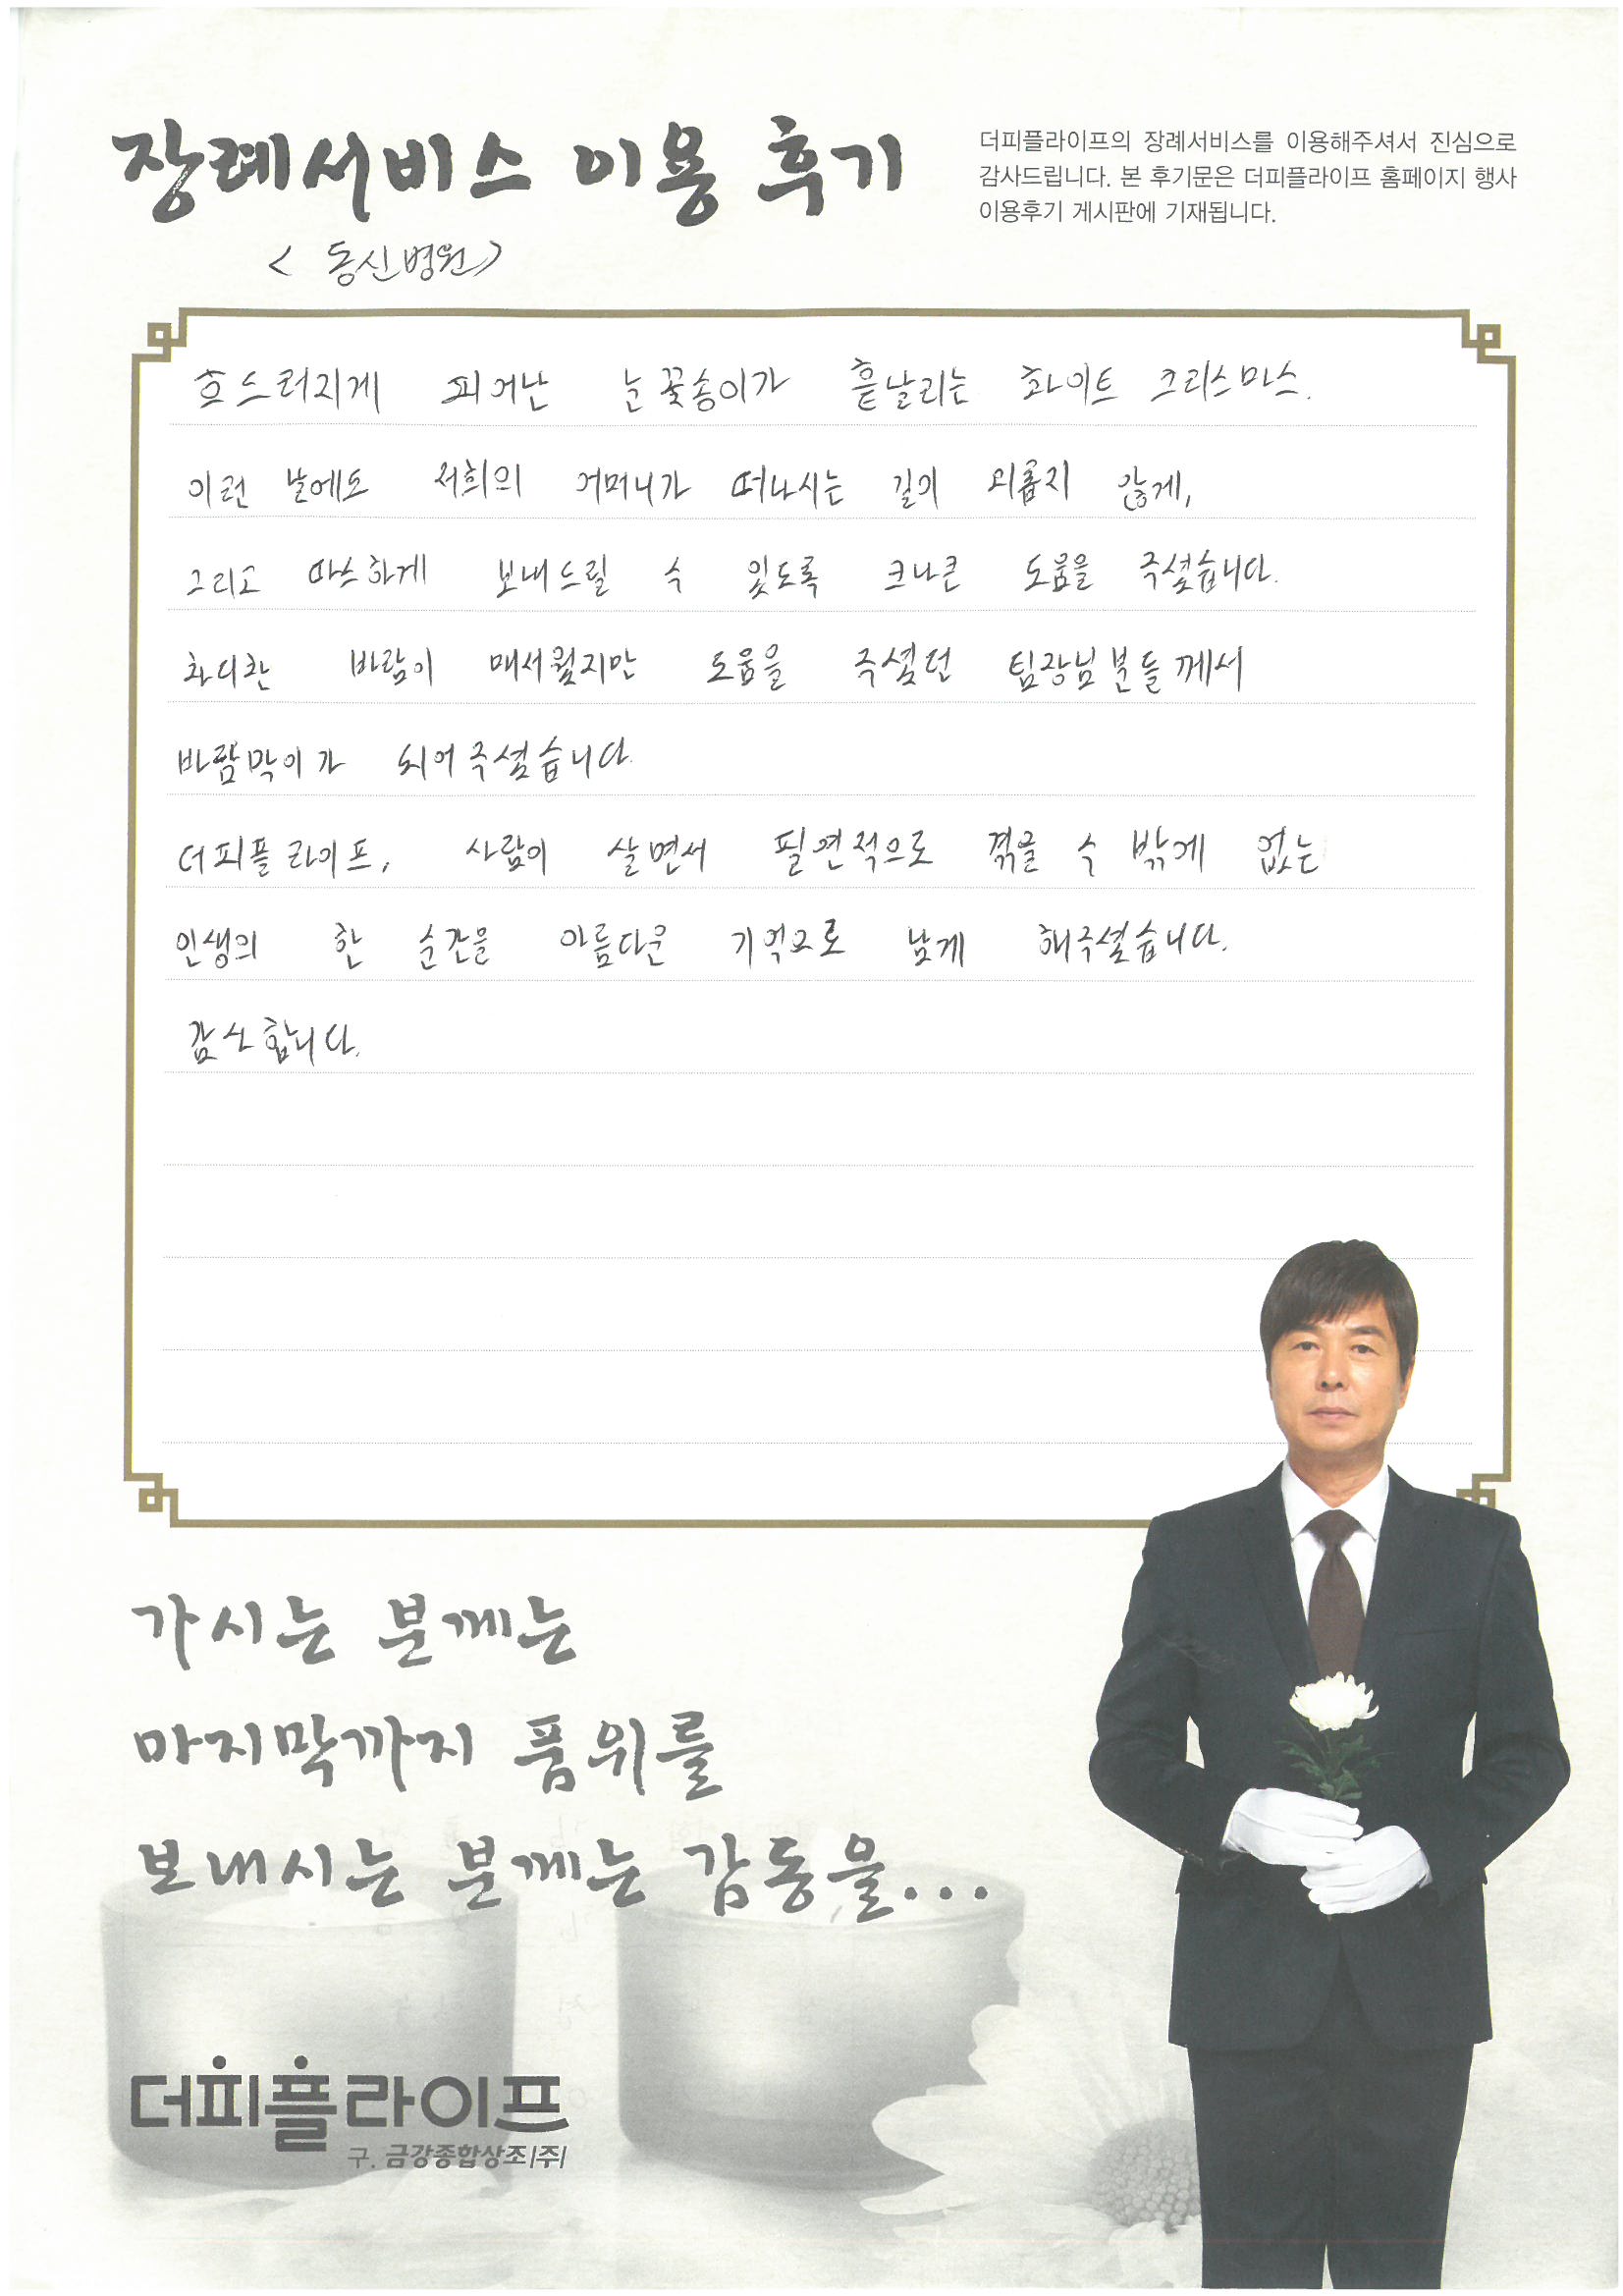 장례서비스 이용 후기
더피플라이프의 장례서비스를 이용해주셔서 진심으로
감사드립니다. 본 후기문은 더피플라이프 홈페이지 행사
이용후기 게시판에 기재됩니다.
< 동신병원>
흐드러지게 피어난 눈꽃송이가 흩날리는 화이트 크리스마스.
이런 날에도 저희의 어머니가 떠나시는 길이 괴롭지 않게,
그리고 따스하게 보내드릴 수 있도록 크나큰 도움을 주셨습니다.
차디찬 바람이 매서웠지만 도움을 주셨던 팀장님분들께서
바람막이가 되어주셨습니다.
더피플라이프, 사람이 살면서 필연적으로 겪을 수 밖에 없는
인생의 한 순간을 아름다운 기억으로 남게 해주셨습니다.
감사합니다.
가시는 분께는
마지막까지 품위를
보내시는 분께는 감동을...
더피플라이프
구. 금강종합상조(주)